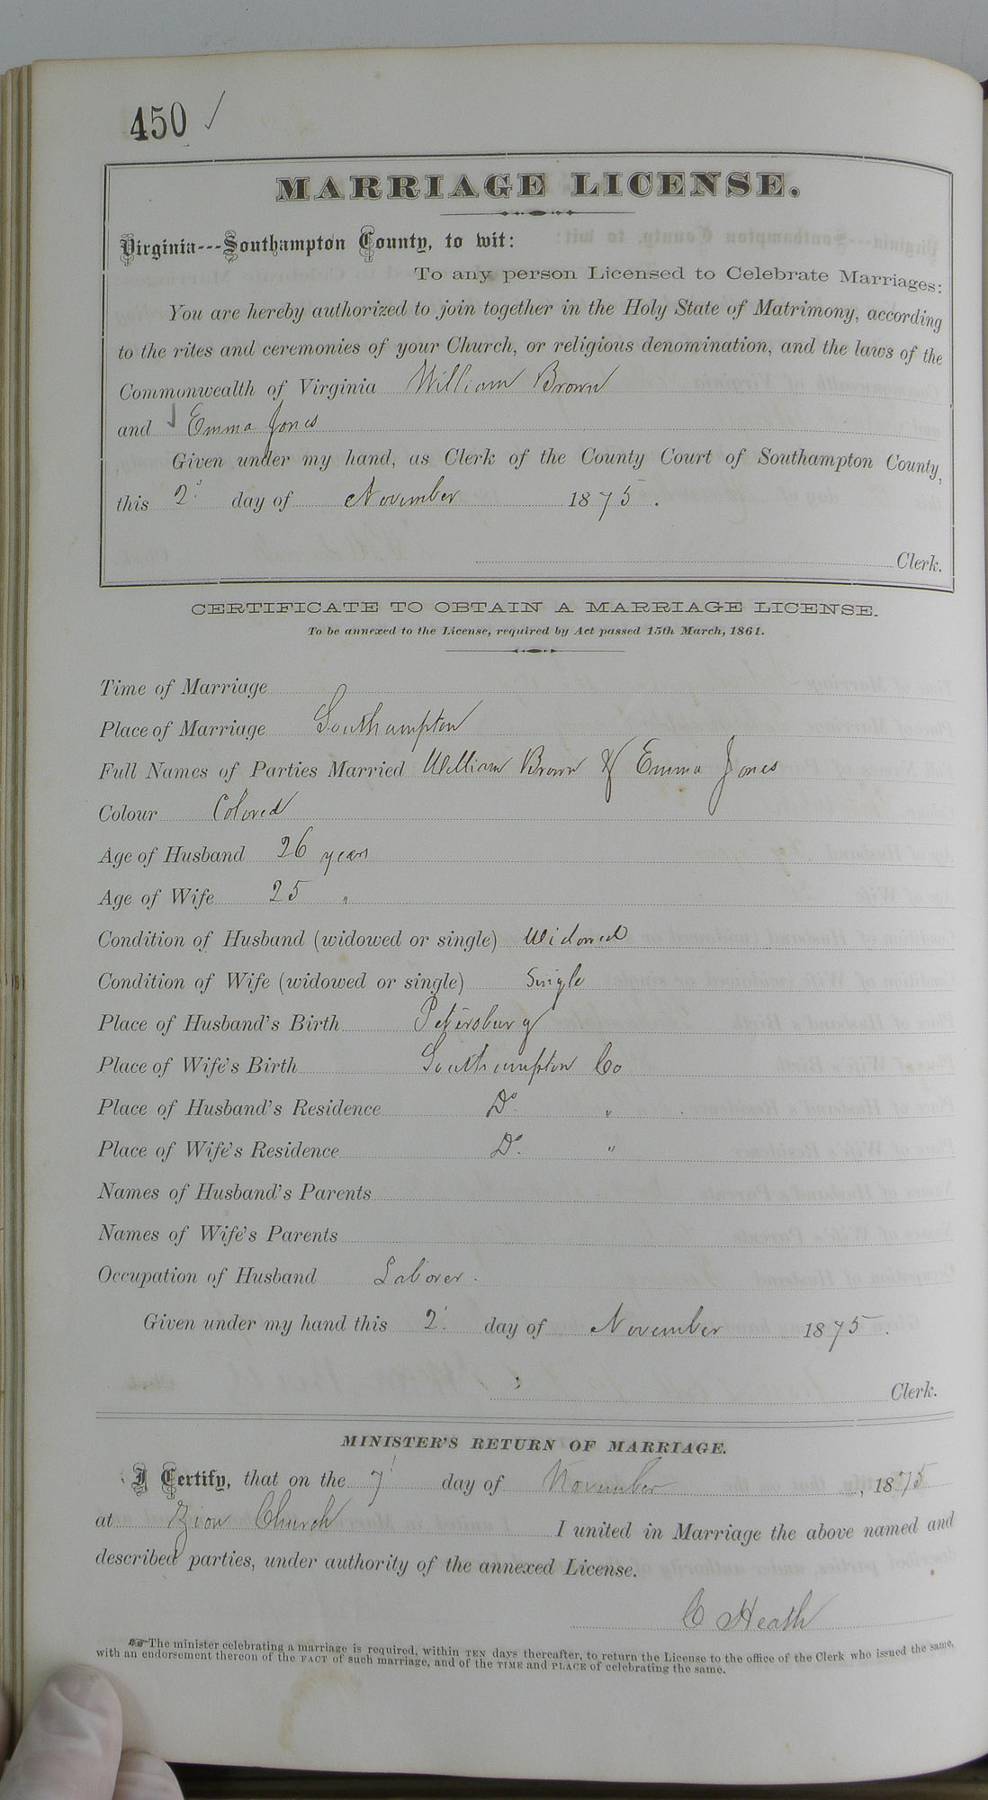 450 ✓
MARRIAGE LICENSE.
Virginia---Southampton County, to wit:
To any person Licensed to Celebrate Marriages:
You are hereby authorized to join together in the Holy State of Matrimony, according
to the rites and ceremonies of your Church, or religious denomination, and the laws of the
Commonwealth of Virginia William Brown
and Emma Jones
Given under my hand, as Clerk of the County Court of Southampton County,
this 2 day of November 1875.
Clerk.
CERTIFICATE TO OBTAIN A MARRIAGE LICENSE.
To be annexed to the License, required by Act passed 15th March, 1861.
Time of Marriage
Place of Marriage Southampton
Full Names of Parties Married William Brown & Emma Jones
Colour Colored
Age of Husband 26 years
Age of Wife 25 "
Condition of Husband (widowed or single) Widowed
Condition of Wife (widowed or single) Single
Place of Husband's Birth Petersburg
Place of Wife's Birth Southampton Co
Place of Husband's Residence Do "
Place of Wife's Residence Do "
Names of Husband's Parents
Names of Wife's Parents
Occupation of Husband Laborer.
Given under my hand this 2 day of November 1875.
Clerk.
MINISTER'S RETURN OF MARRIAGE.
I Certify, that on the 7 day of November, 1875
at Zion Church I united in Marriage the above named and
described parties, under authority of the annexed License.
C Heath
The minister celebrating a marriage is required, within TEN days thereafter, to return the License to the office of the Clerk who issued the same,
with an endorsement thereon of the FACT of such marriage, and of the TIME and PLACE of celebrating the same.